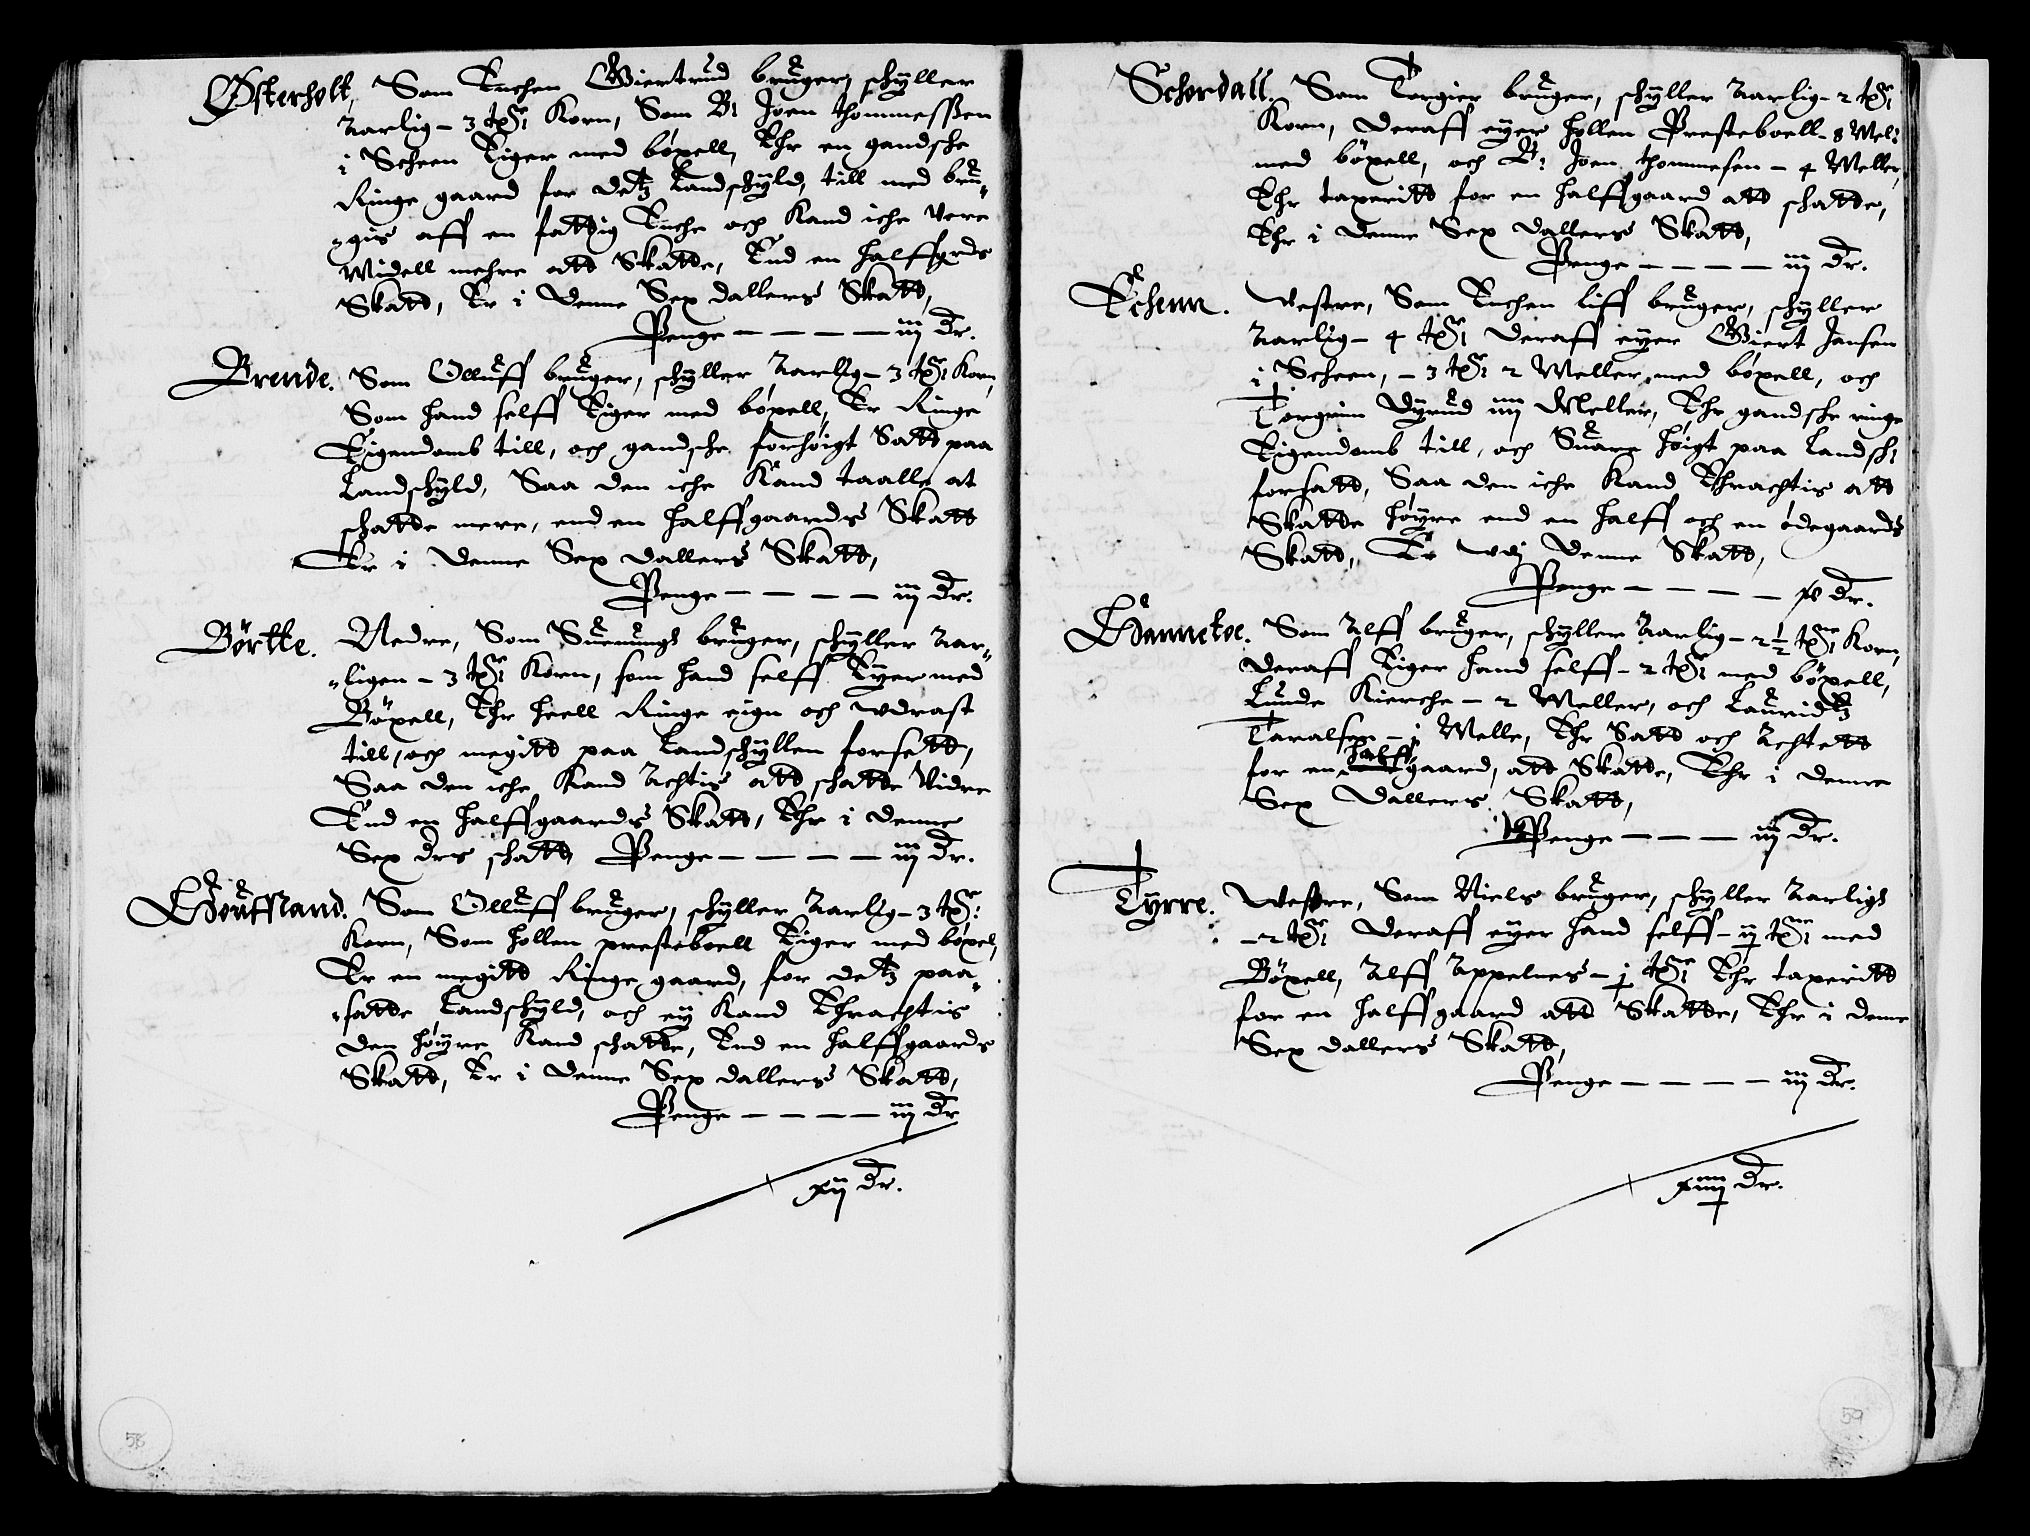 Østerholt, Som Enchen Giertrud bruger, schÿller
Aarlig - 3 tþr Korn, Som Br Joen thommesßen
i Scheen Eiger med böxell, Ehr en gandsche
Ringe gaard for detz Landschÿld, till med bru-
-gis aff en fattig Enche och Kand iche vere
Widell mehre att Skatte, End en halffgrds
Skatt, Er i denne Sex dallers Skatt,
Penge - - - - iij dr.
Brende. Som Olluff bruger, schÿller Aarlig - 3 tþr Korn,
Som hand selff Eiger med böxell, Er Ringe
Eigendomb till, och gandsche forhøigt Satt paa
Landschÿld, Saa den iche Kand taalle at
schatte mere, end en halffgaards Skatt
Er i denne Sex dallers Skatt,
Penge - - - - iij dr.
Börtte. Nedre, Som Suenungh bruger, schÿller Aar-
-ligen - 3 tþr Korn, som hand selff Eÿer med
Böxell, Ehr heell Ringe eign och wdrast
till, och megitt paa Landschÿllen forsatt,
Saa den iche Kand Achtis att schatte Vidre
End en halffgaards Skatt, Ehr i denne
Sex drs schatt, Penge - - - - iij dr.
Houffland. Som Olluff bruger, schÿller Aarlig - 3 tþr:
Korn, Som hollen presteboell Eiger med böxel,
Er en megitt Ringe gaard, for detz paa-
-satte Landschÿld, och eÿ Kand Ehrachtis
den høÿre Kand schatte, End en halffgaards
Skatt, Er i denne Sex dallers Skatt,
Penge - - - - iij dr
xij dr.
58
Schordall. Som Torgier bruger, schÿller Aarlig - 2 tþr
Korn, deraff eÿer hollen Presteboell - 8 Mel:
med böxell, och B: Joen thommesen - 4 Meller,
Ehr taxeritt for en halffgaard att schatte,
Ehr i denne Sex dallers Skatt,
Penge - - - - iij dr.
Echenn. Vestre, Som Enchen liff bruger, schÿller
Aarlig - 4 tþr deraff eÿer Giert Jansen
i Scheen, - 3 tþr 2 Meller med böxell, och
Torgrim Dÿrud iiij Meller, Ehr gandsche ringe
Eigendomb till, och Suare høigt paa Landsch:
forsatt, Saa den iche Kand Ehrachtis att
Skatte høÿre end en halff och en ödegaards
Skatt, Er wdj denne Skatt,
Penge - - - - dr.
Hannetoe. Som Alff bruger, schÿller Aarlig - 2 1/2 tþr Korn,
deraff Eiger hand selff - 2 tþr med böxell,
Lunde Kierche - 2 Meller, och Lauridtz
Taralsen - j Melle, Ehr Satt och Achtett
for en halff gaard, att Skatte, Ehr i denne
Sex dallers Skatt,
Penge - - - iij dr.
Tÿrre. Westre, Som Niels bruger, schÿller Aarligh
- 2 tþr deraff eÿer hand selff - ij tþr med
Böxell, Alff Appelnes - j tþr Ehr taxeritt
for en halffgaard att Skatte, Ehr i denne
Sex dallers Skatt,
Penge - - - - iij dr.
xiiij dr.
59